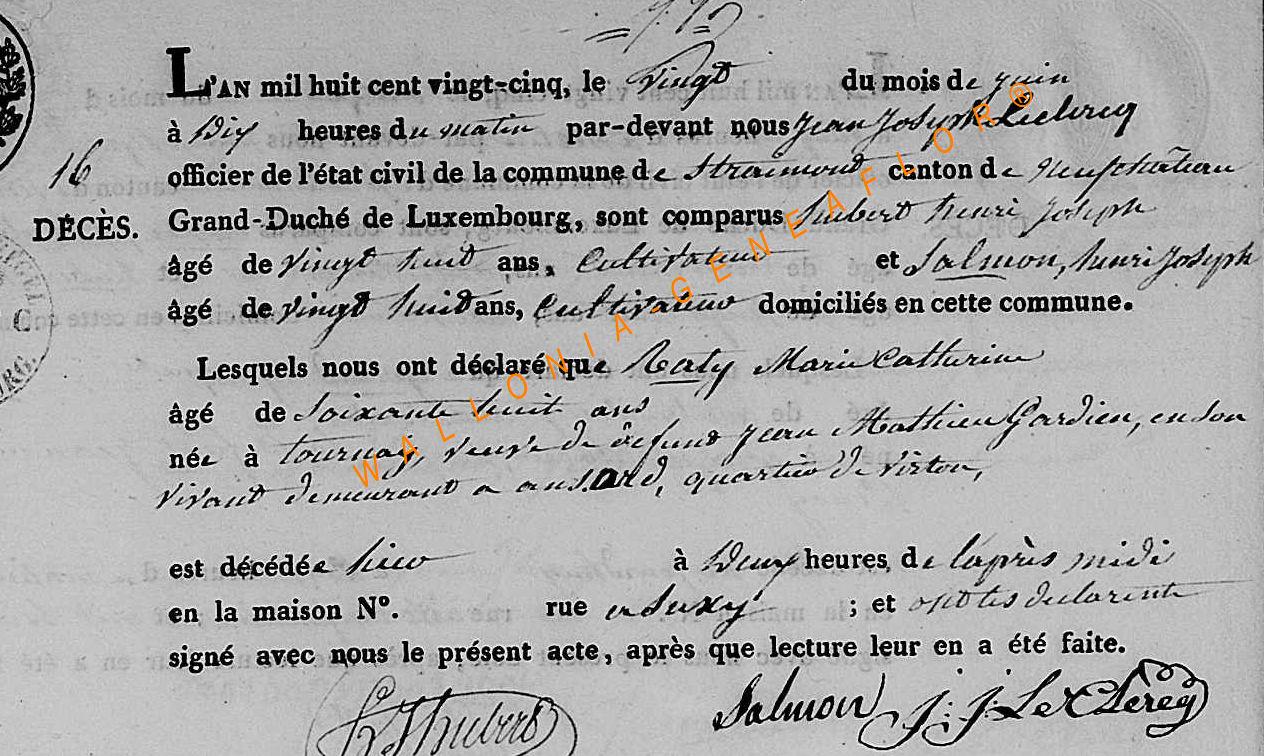 L'AN mil huit cent vingt-cinq, le vingt du mois de juin
à Dix heures du matin par-devant nous Jean Joseph Leclercq
16 officier de l'état civil de la commune de Straimont canton de Neufchâteau
DÉCÈS. Grand-Duché de Luxembourg, sont comparus hubert henri Joseph
âgé de vingt huit ans, Cultivateur et Salmon, henri Joseph
âgé de vingt huit ans, Cultivateur domiciliés en cette commune.
Lesquels nous ont déclaré que Marie Catherine
âgé de Soixante huit ans
née à tournay, veuve de defunt jean Mathieu Gardien, en son
vivant demeurant a ansard, quartier de virton,
est décédée hier à Deux heures de l'après midi
en la maison N°. rue a Suxy ; et
signé avec nous le présent acte, après que lecture leur en a été faite.
hubert Salmon J: J: LeClercq
WALLONIA GENEAFLOR®